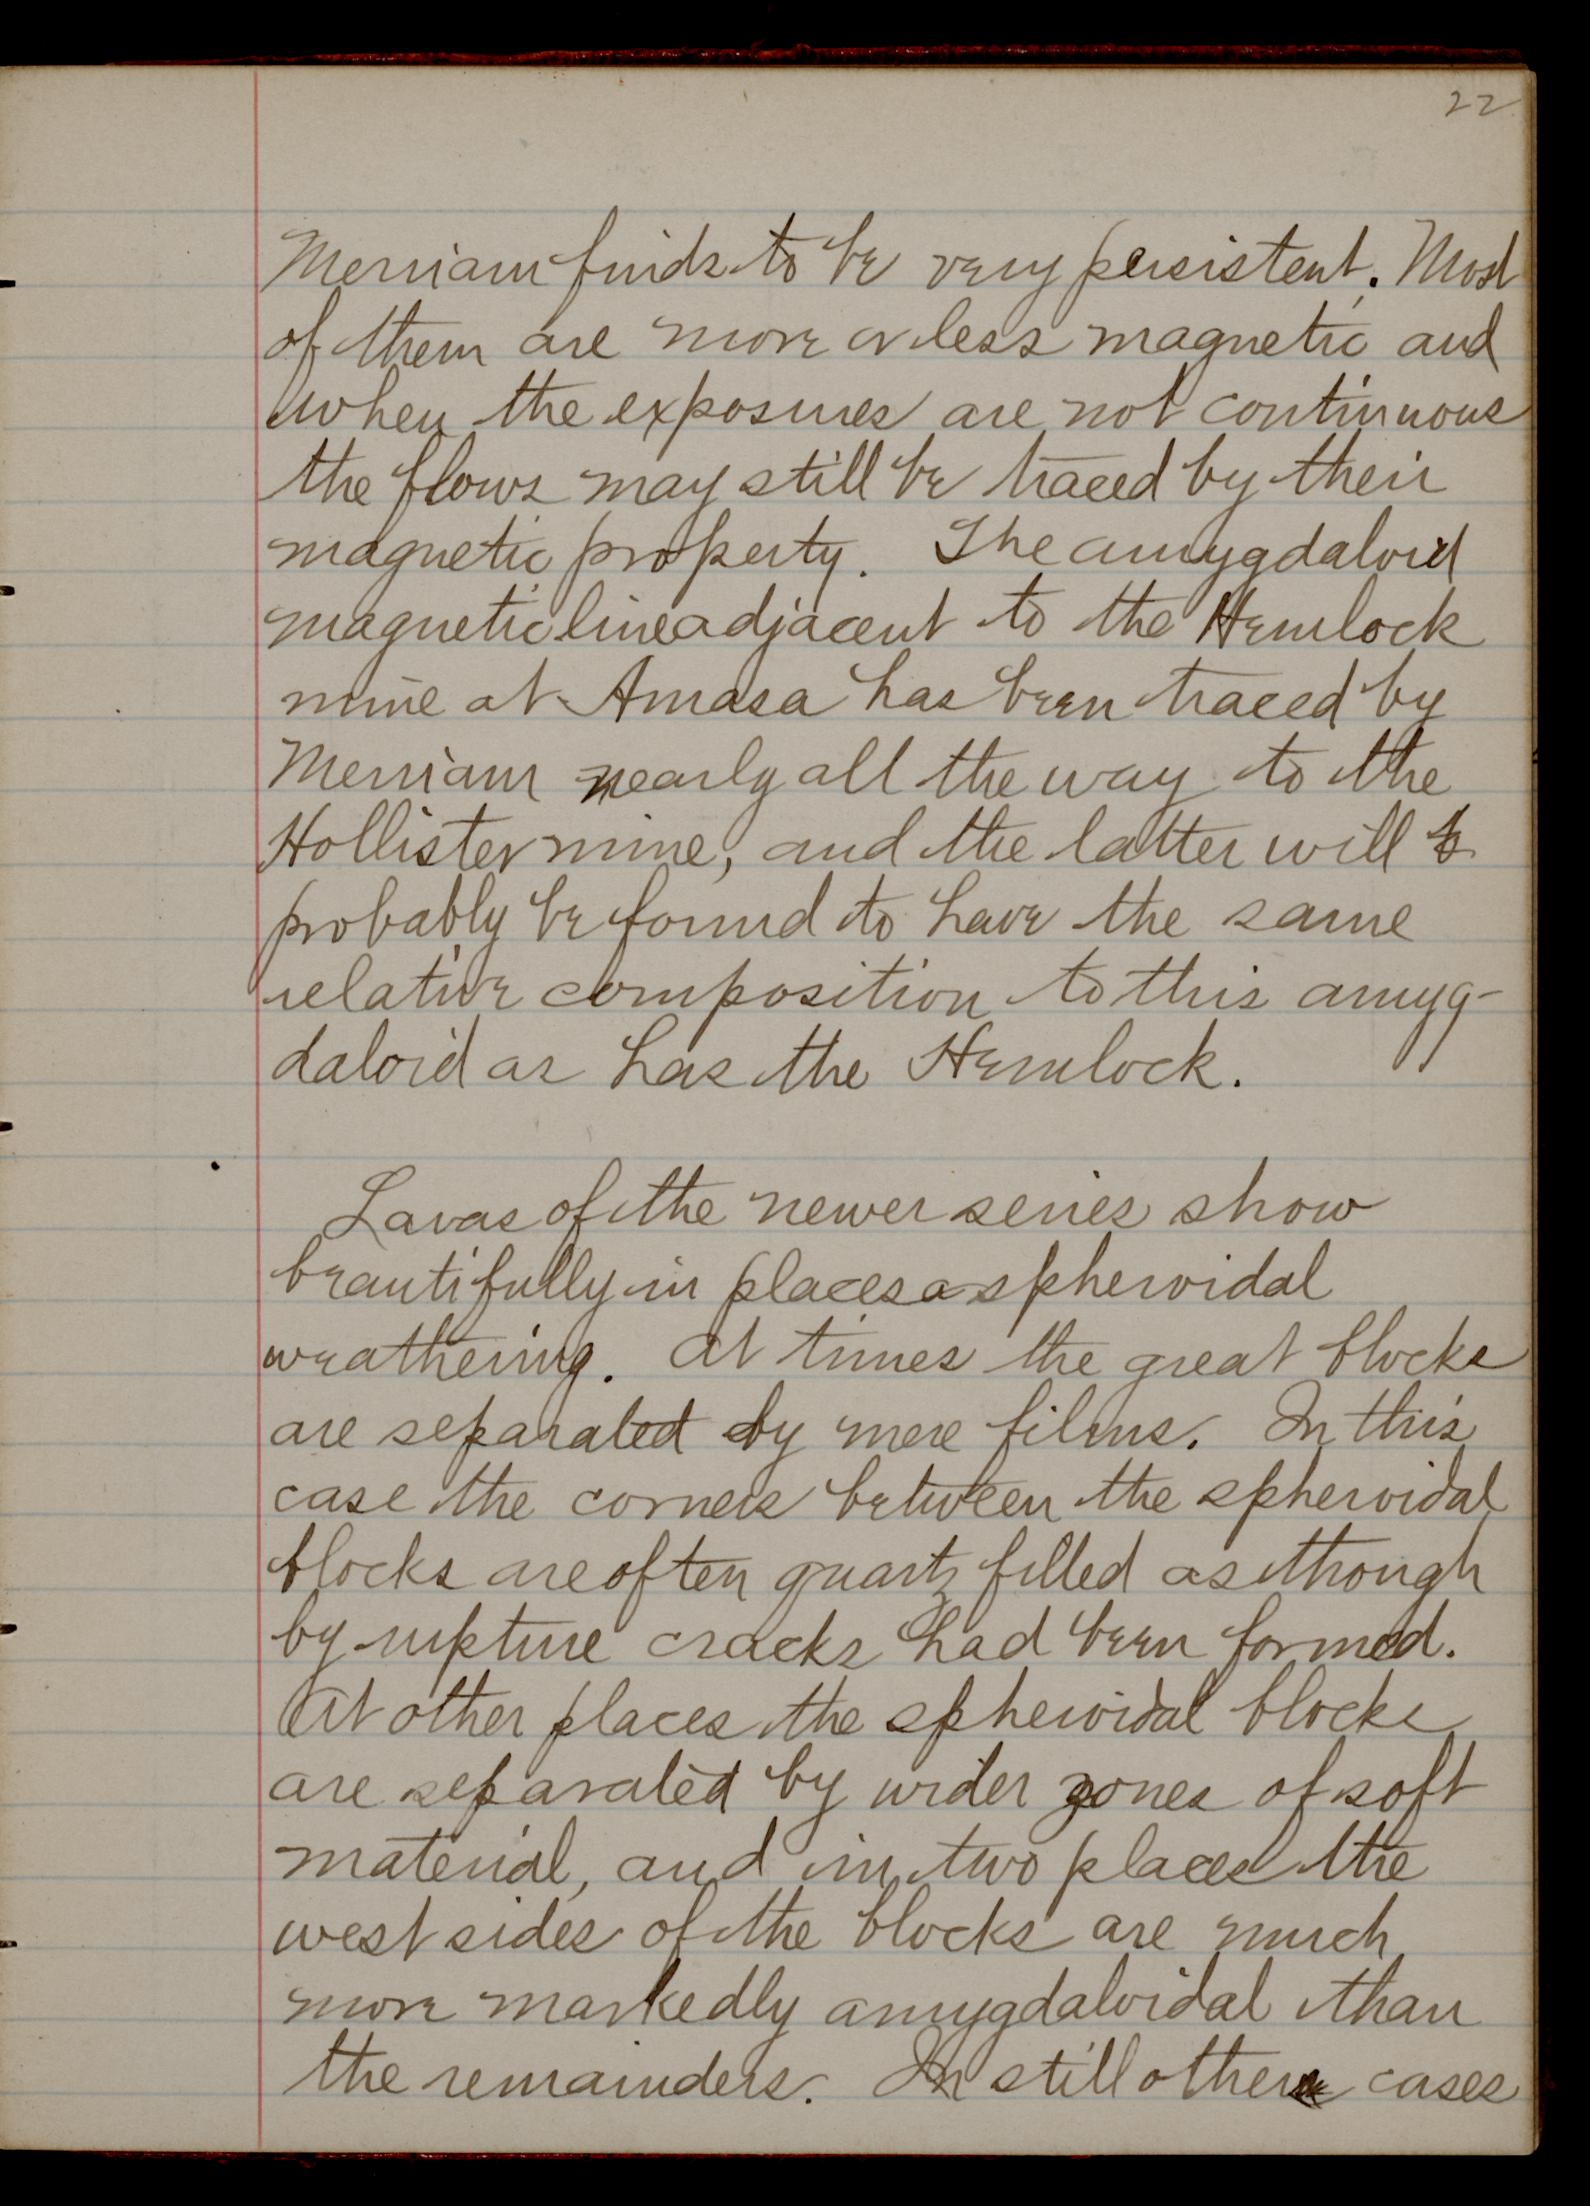 22
Merriam finds to be very persistent. Most
of them are more or less magnetic and
when the exposures are not continuous
the flows may still be traced by their
magnetic property. The amygdaloid
magnetic line adjacent to the Hemlock
mine at Amasa has been traced by
Merriam nearly all the way to the
Hollister mine, and the latter will to
probably be found to have the same
relative composition to this amyg-
daloid as has the Hemlock.
Lavas of the newer series show
beautifully in places a spheroidal
weathering. At times the great blocks
are separated by mere films. In this
case the corners between the spheroidal
blocks are often quartz filled as though
by rupture cracks had been formed.
At other places the spheroidal blocks
are separated by wider zones of soft
material, and in two places the
west sides of the blocks are much
more markedly amygdaloidal than
the remainders. In still other cases